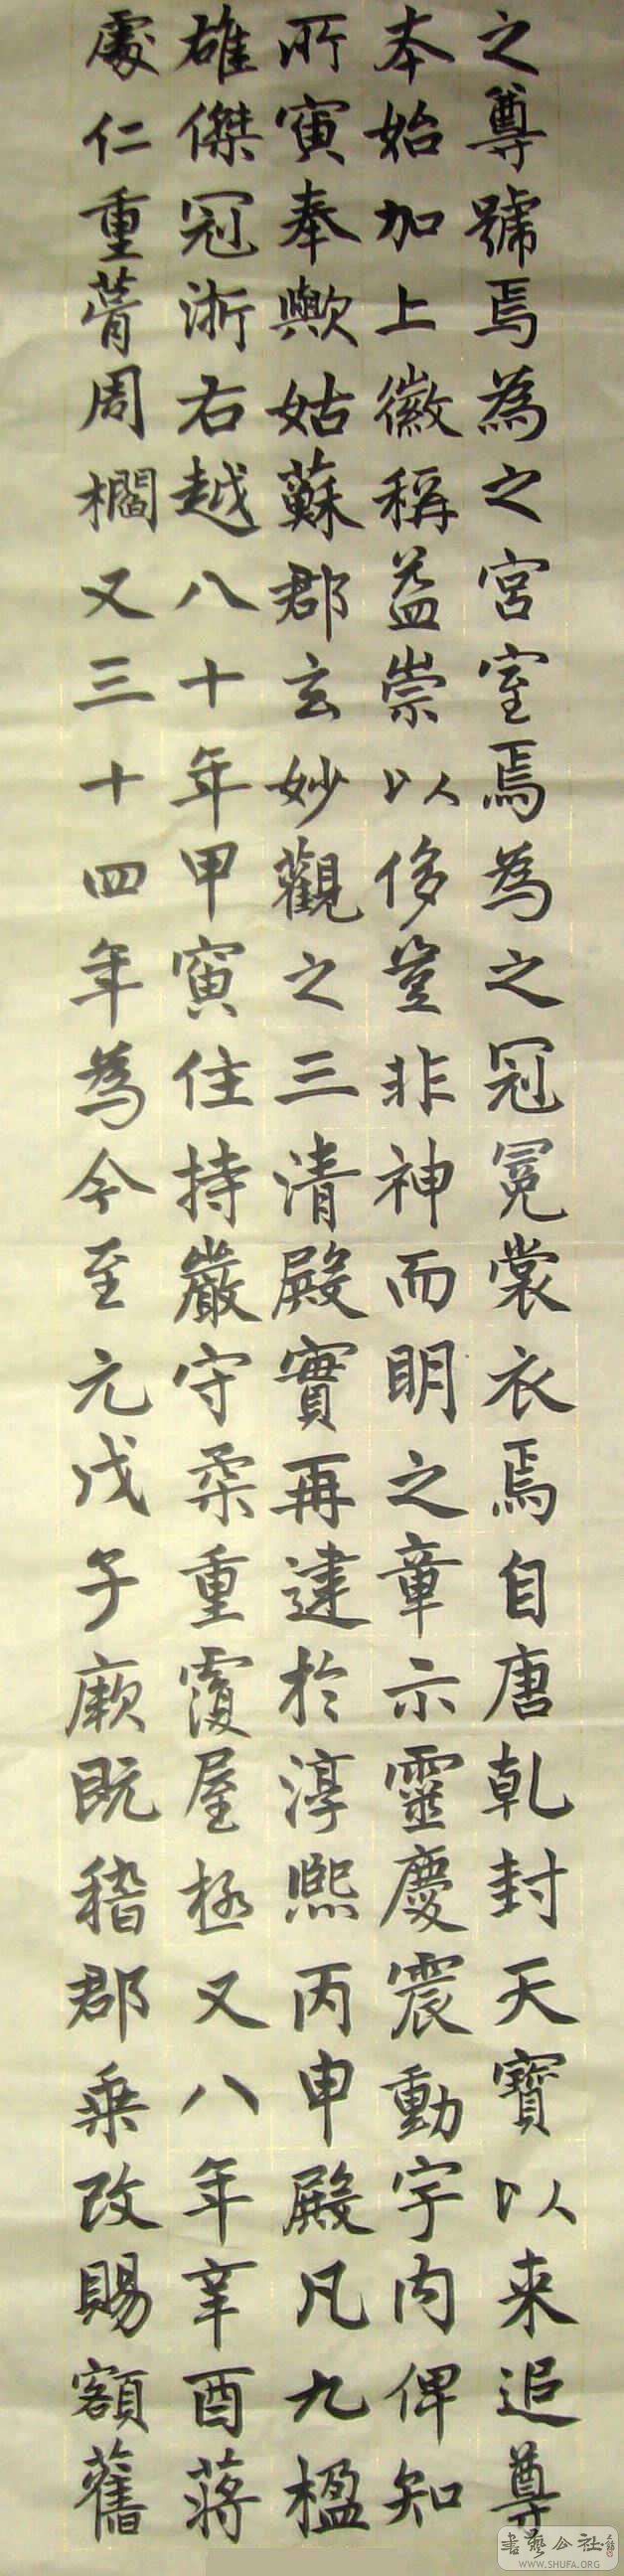 之尊號焉為之宮室焉為之冠冕裳衣焉自唐乾封天寶以来追尊
本始加上徽稱益崇以侈豈非神而明之章示靈慶震動宇内俾知
所寅奉歟姑蘇郡玄妙觀之三清殿實再建於淳熙丙申殿凡九楹
雄傑冠浙右越八十年甲寅住持嚴守柔重覆屋極又八年辛酉蔣
處仁重葺周櫩又三十四年為今至元戊子厥既稽郡乗改賜額舊
書藝公社
WWW.SHUFA.ORG